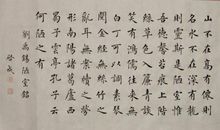 山不在高有僊則
名水不在深有龍
則靈斯是陋室惟
吾德馨苔痕上階
綠草色入簾青談
笑有鴻儒往來無
白丁可以調素琴
閱金經無絲竹之
亂耳無案牘之勞
形南陽諸葛廬西
蜀子雲亭孔子云
何陋之有
劉禹錫陋室銘